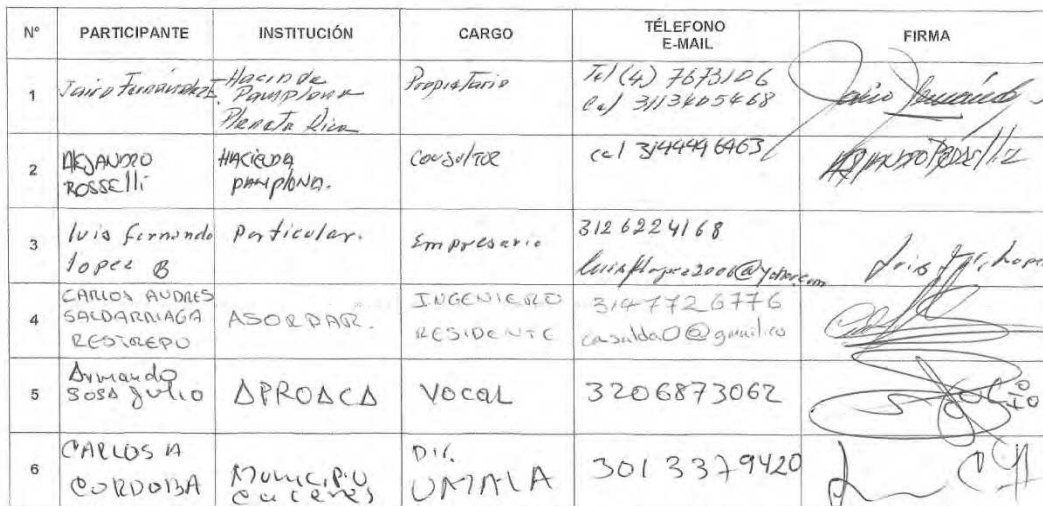 N° PARTICIPANTE INSTITUCIÓN CARGO TÉLEFONO E-MAIL FIRMA
1 Jairo Fernández E. Hacinda Pamplona Planeta Rica Propietario Tel (4) 7673106 Cel 3113405468 Jairo Fernández
2 ALEJANDRO ROSSELLI HACIENDA PAMPLONA. CONSULTOR cel 3144446463
3 luis fernando lopez B Particular. Empresario 3126224168
4 CARLOS ANDRES SALDARRIAGA RESTREPO ASORPAR. INGENIERO RESIDENTE 3147726776 casalda0@gmail.co
5 Armando SOSA Julio APROACA VOCAL 3206873062
6 CARLOS A CORDOBA MUNICIPIO CACERES DIR. UMATA 3013379420